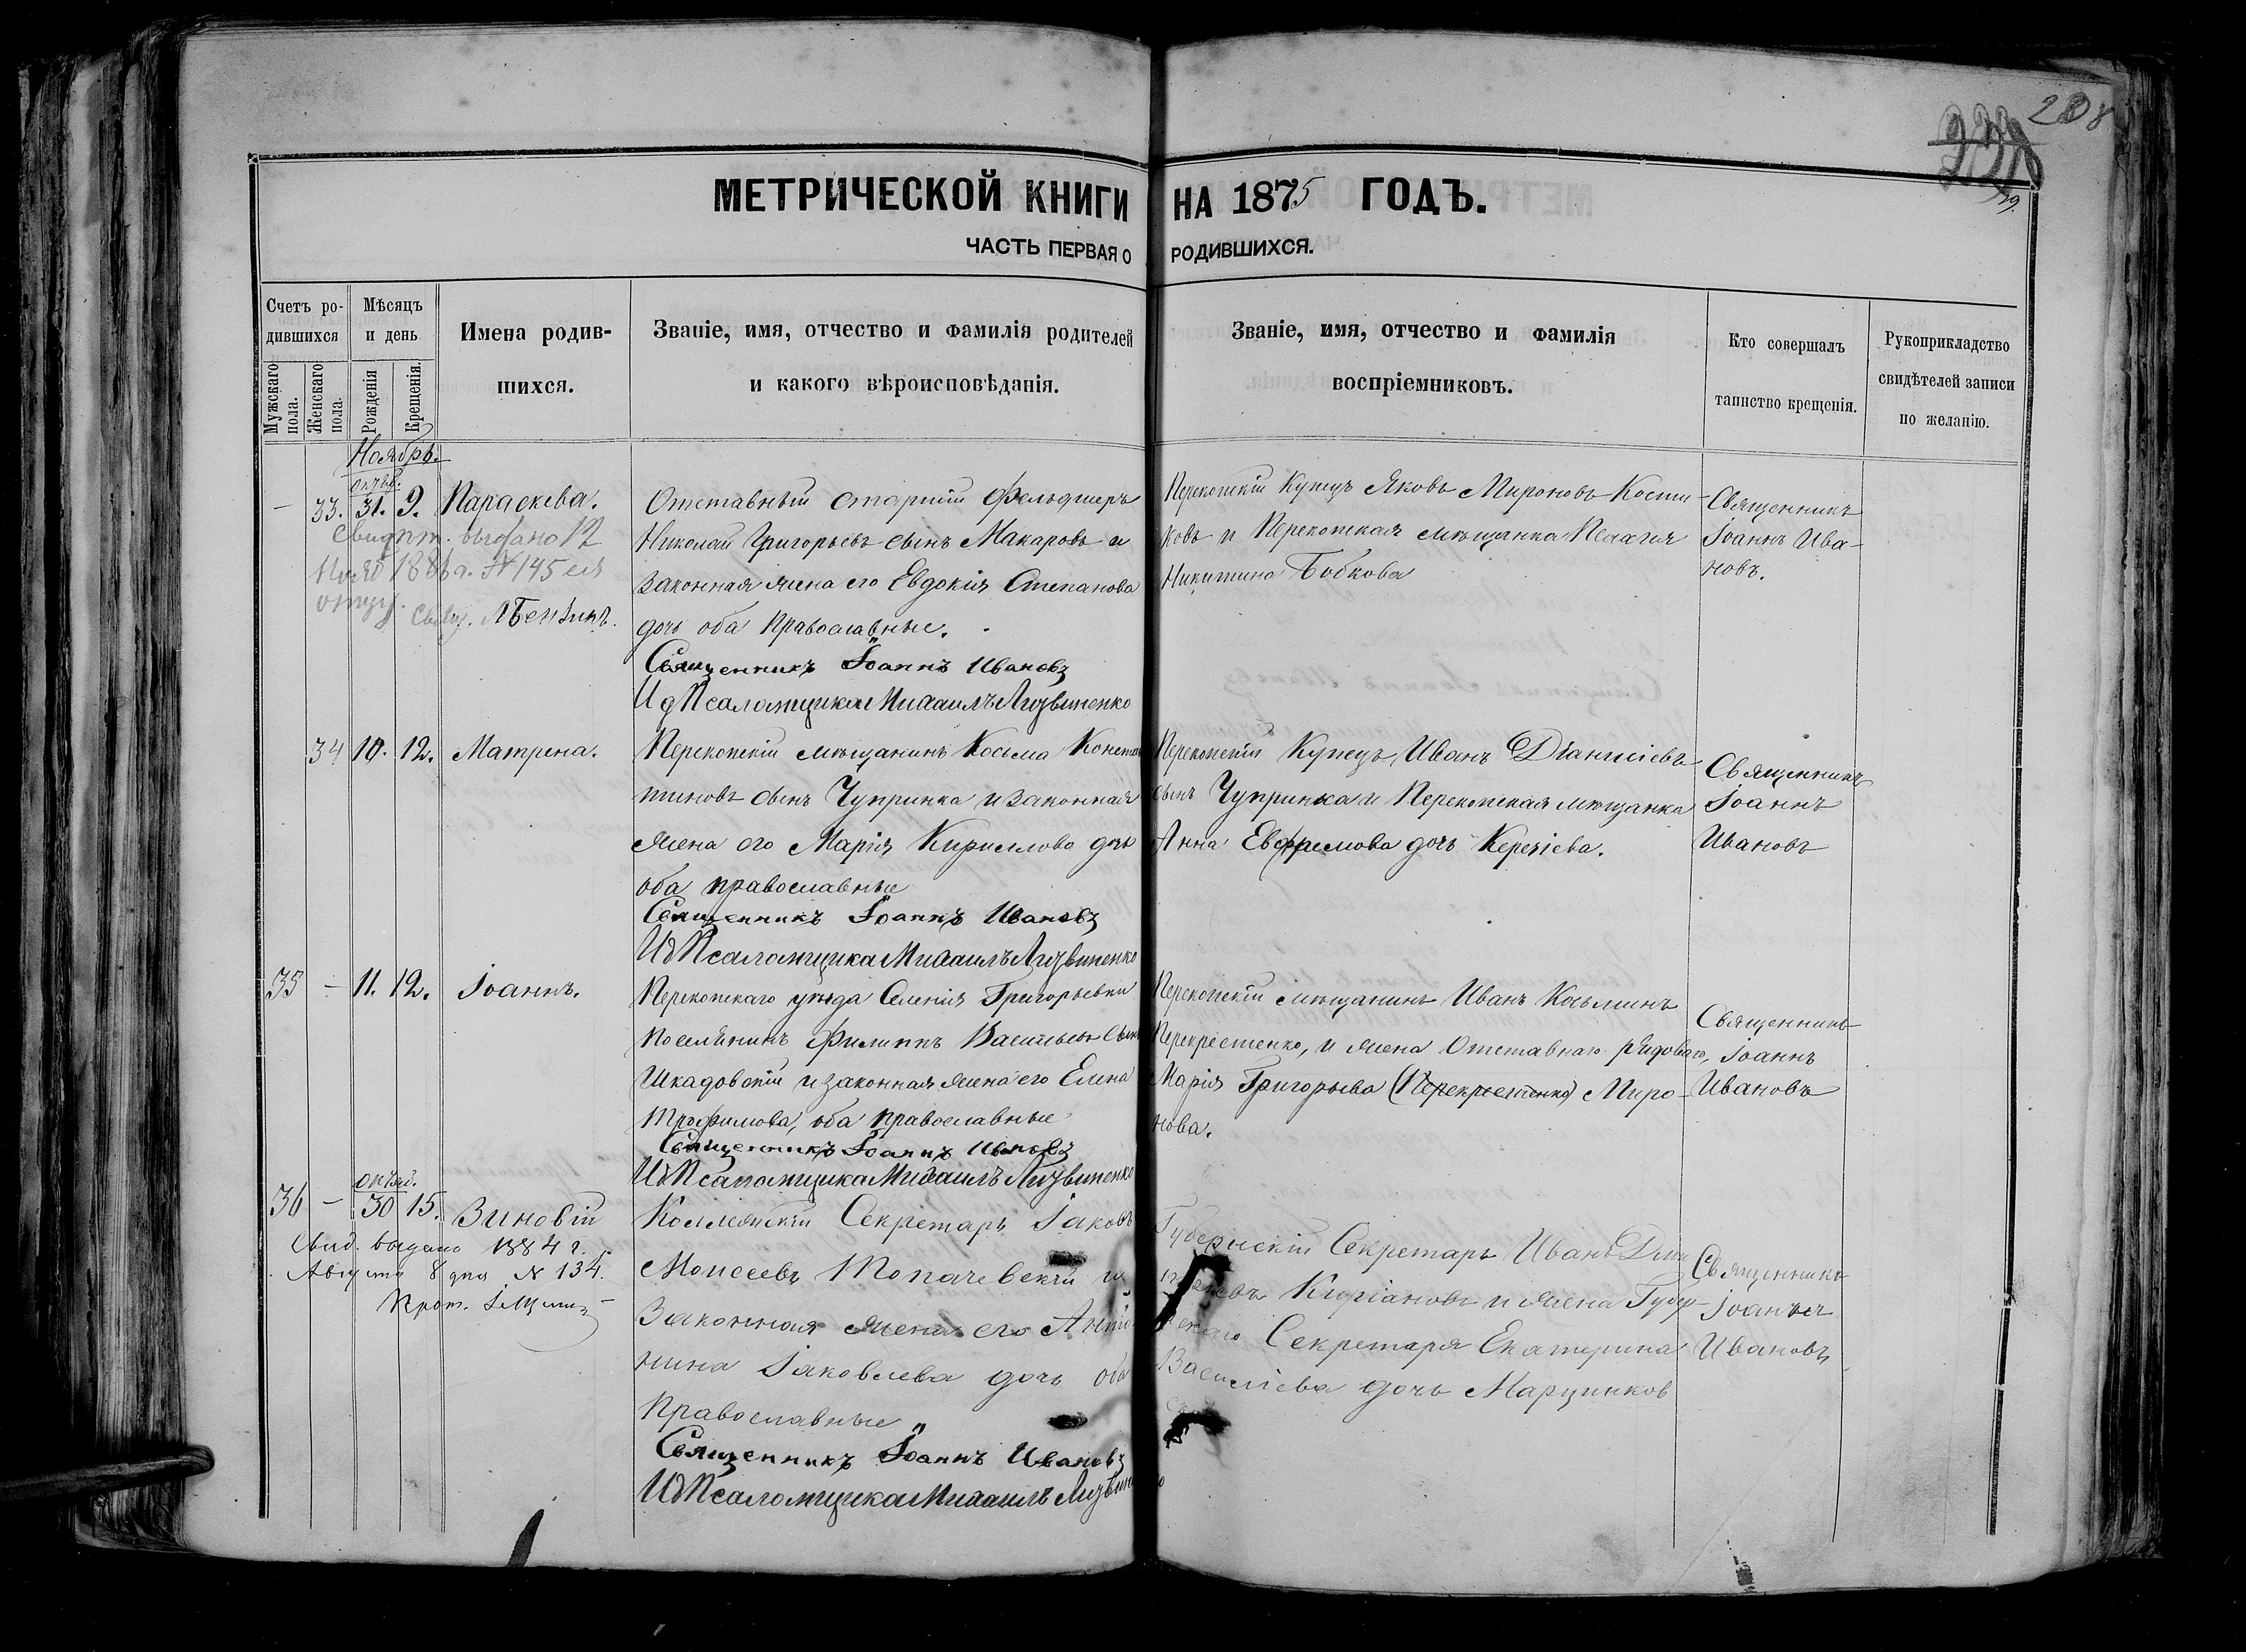 208
МЕТРИЧЕСКОЙ КНИГИ НА 1875 ГОДЪ.
ЧАСТЬ ПЕРВАЯ О РОДИВШИХСЯ.
Счетъ ро-
дившихся
Мужскаго пола.
Женскаго пола.
Мѣсяцъ
и день
Рожденія
Крещенія.
Имена родив-
шихся.
Званіе, имя, отчество и фамилія родителей
и какого вѣроисповѣданія.
Званіе, имя, отчество и фамилія
воспріемниковъ.
Кто совершалъ
таинство крещенія.
Рукоприкладство
свидѣтелей записи
по желанію.
Ноябрь.
Октяб.
— 33. 31. 9. Параскева.
Свидѣт. выдано 12
Нояб 1886 г. № 145
Свящ.
Отставный старшій Фельдшеръ
Николай Григорьевъ сынъ Макаровъ и
законная жена его Евдокія Степанова
дочь оба Православные.
Священникъ Іоаннъ Ивановъ
И д Псаломщика Михаилъ Лизвиненко
Перекопскій Купецъ Яковъ Мироновъ Кости-
ковъ и Перекопская мѣщанка Пелагія
Никитина Бобкова
Священникъ
Іоаннъ Ива-
новъ.
34 10. 12. Матрена.
Перекопскій мѣщанинъ Косьма Констан
тиновъ сынъ Чупринка и законная
жена его Марія Кириллова дочь
оба православные
Священникъ Іоаннъ Ивановъ
И д Псаломщика Михаилъ Лизвиненко
Перекопскій Купецъ Иванъ Діанисіевъ
сынъ Чупринка и Перекопская мѣщанка
Анна Евфимова дочь Керечіева.
Священникъ
Іоаннъ
Ивановъ
35 — 11. 12. Іоаннъ.
Перекопскаго уѣзда Селенія Григорьевки
поселянинъ Филиппъ Васильевъ сынъ
Шкадовскій и законная жена его Елена
Трофимова, оба православные
Священникъ Іоаннъ Ивановъ
И д Псаломщика Михаилъ Лизвиненко
Перекопскій мѣщанинъ Иванъ Косьминъ
Перекрестенко, и жена Отставнаго рядоваго,
Марія Григорьева (Перекрестенко) Миро-
нова.
Священникъ
Іоаннъ
Ивановъ
Октяб.
36 — 30 15. Зиновій
Свид. выдано 1884 г.
Августа 8 дня № 134.
Прот.
Коллежскій Секретарь Іаковъ
Моисеевъ Топачевскій и
Законная жена его Анто
нина Іаковлева дочь оба
Православные
Священникъ Іоаннъ Ивановъ
И д Псаломщика Михаилъ Лизвиненко
Губернскій Секретарь Иванъ Дми
тріевъ Кипріановъ и жена Губер
нскаго Секретаря Екатерина
Василіева дочь Марцинков
ска
Священникъ
Іоаннъ
Ивановъ